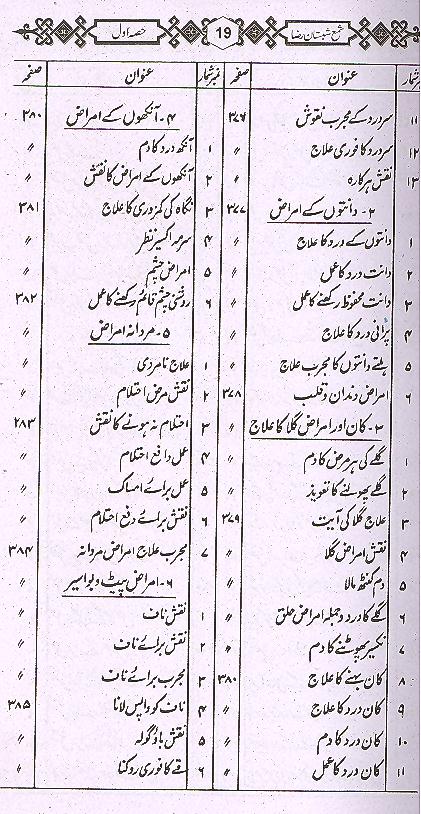 شمع شبستان رضا
19
حصہ اول
نمبر شمار عنوان صفحہ
۱۱ سردرد کے مجرب نقوش ۳۷۶
۱۲ سردرد کا فوری علاج 〃
۱۳ نقش ہرکارہ 〃
۲۔ دانتوں کے امراض ۳۷۷
۱ دانتوں کے درد کا علاج 〃
۲ دانت درد کا عمل 〃
۳ دانت محفوظ رکھنے کا عمل 〃
۴ پرانی درد کا علاج 〃
۵ ہلتے دانتوں کا مجرب علاج 〃
۶ امراض دندان و قلب ۳۷۸
۳۔ کان اور امراض گلا کا علاج 〃
۱ گلے کی ہر مرض کا دم 〃
۲ گلے پھولنے کا تعویذ 〃
۳ علاج گلا کی آیت ۳۷۹
۴ نقش امراض گلا 〃
۵ دم کنٹھ مالا 〃
۶ گلے کا درد و جملہ امراض حلق 〃
۷ نکسیر پھوٹنے کا دم 〃
۸ کان بہنے کا علاج ۳۸۰
۹ کان درد کا علاج 〃
۱۰ کان درد کا دم 〃
۱۱ کان درد کا عمل 〃
نمبر شمار عنوان صفحہ
۴۔ آنکھوں کے امراض ۳۸۰
۱ آنکھ درد کا دم 〃
۲ آنکھوں کے امراض کا نقش 〃
۳ نگاہ کی کمزوری کا علاج ۳۸۱
۴ سرمہ اکسیر نظر 〃
۵ امراض چشم 〃
۶ روشنی چشم قائم رکھنے کا عمل ۳۸۲
۵۔ مردانہ امراض 〃
۱ علاج نامردی 〃
۲ نقش مرض احتلام 〃
۳ احتلام نہ ہونے کا نقش ۲۸۳
۴ عمل دافع احتلام 〃
۵ عمل برائے امساک 〃
۶ نقش برائے دفع احتلام 〃
۷ مجرب علاج امراض مردانہ ۳۸۴
۶۔ امراض پیٹ و بواسیر 〃
۱ نقش ناف 〃
۲ نقش برائے ناف 〃
۳ مجرب برائے ناف 〃
۴ ناف کو واپس لانا ۳۸۵
۵ نقش باؤ گولہ 〃
۶ قے کا فوری روکنا 〃